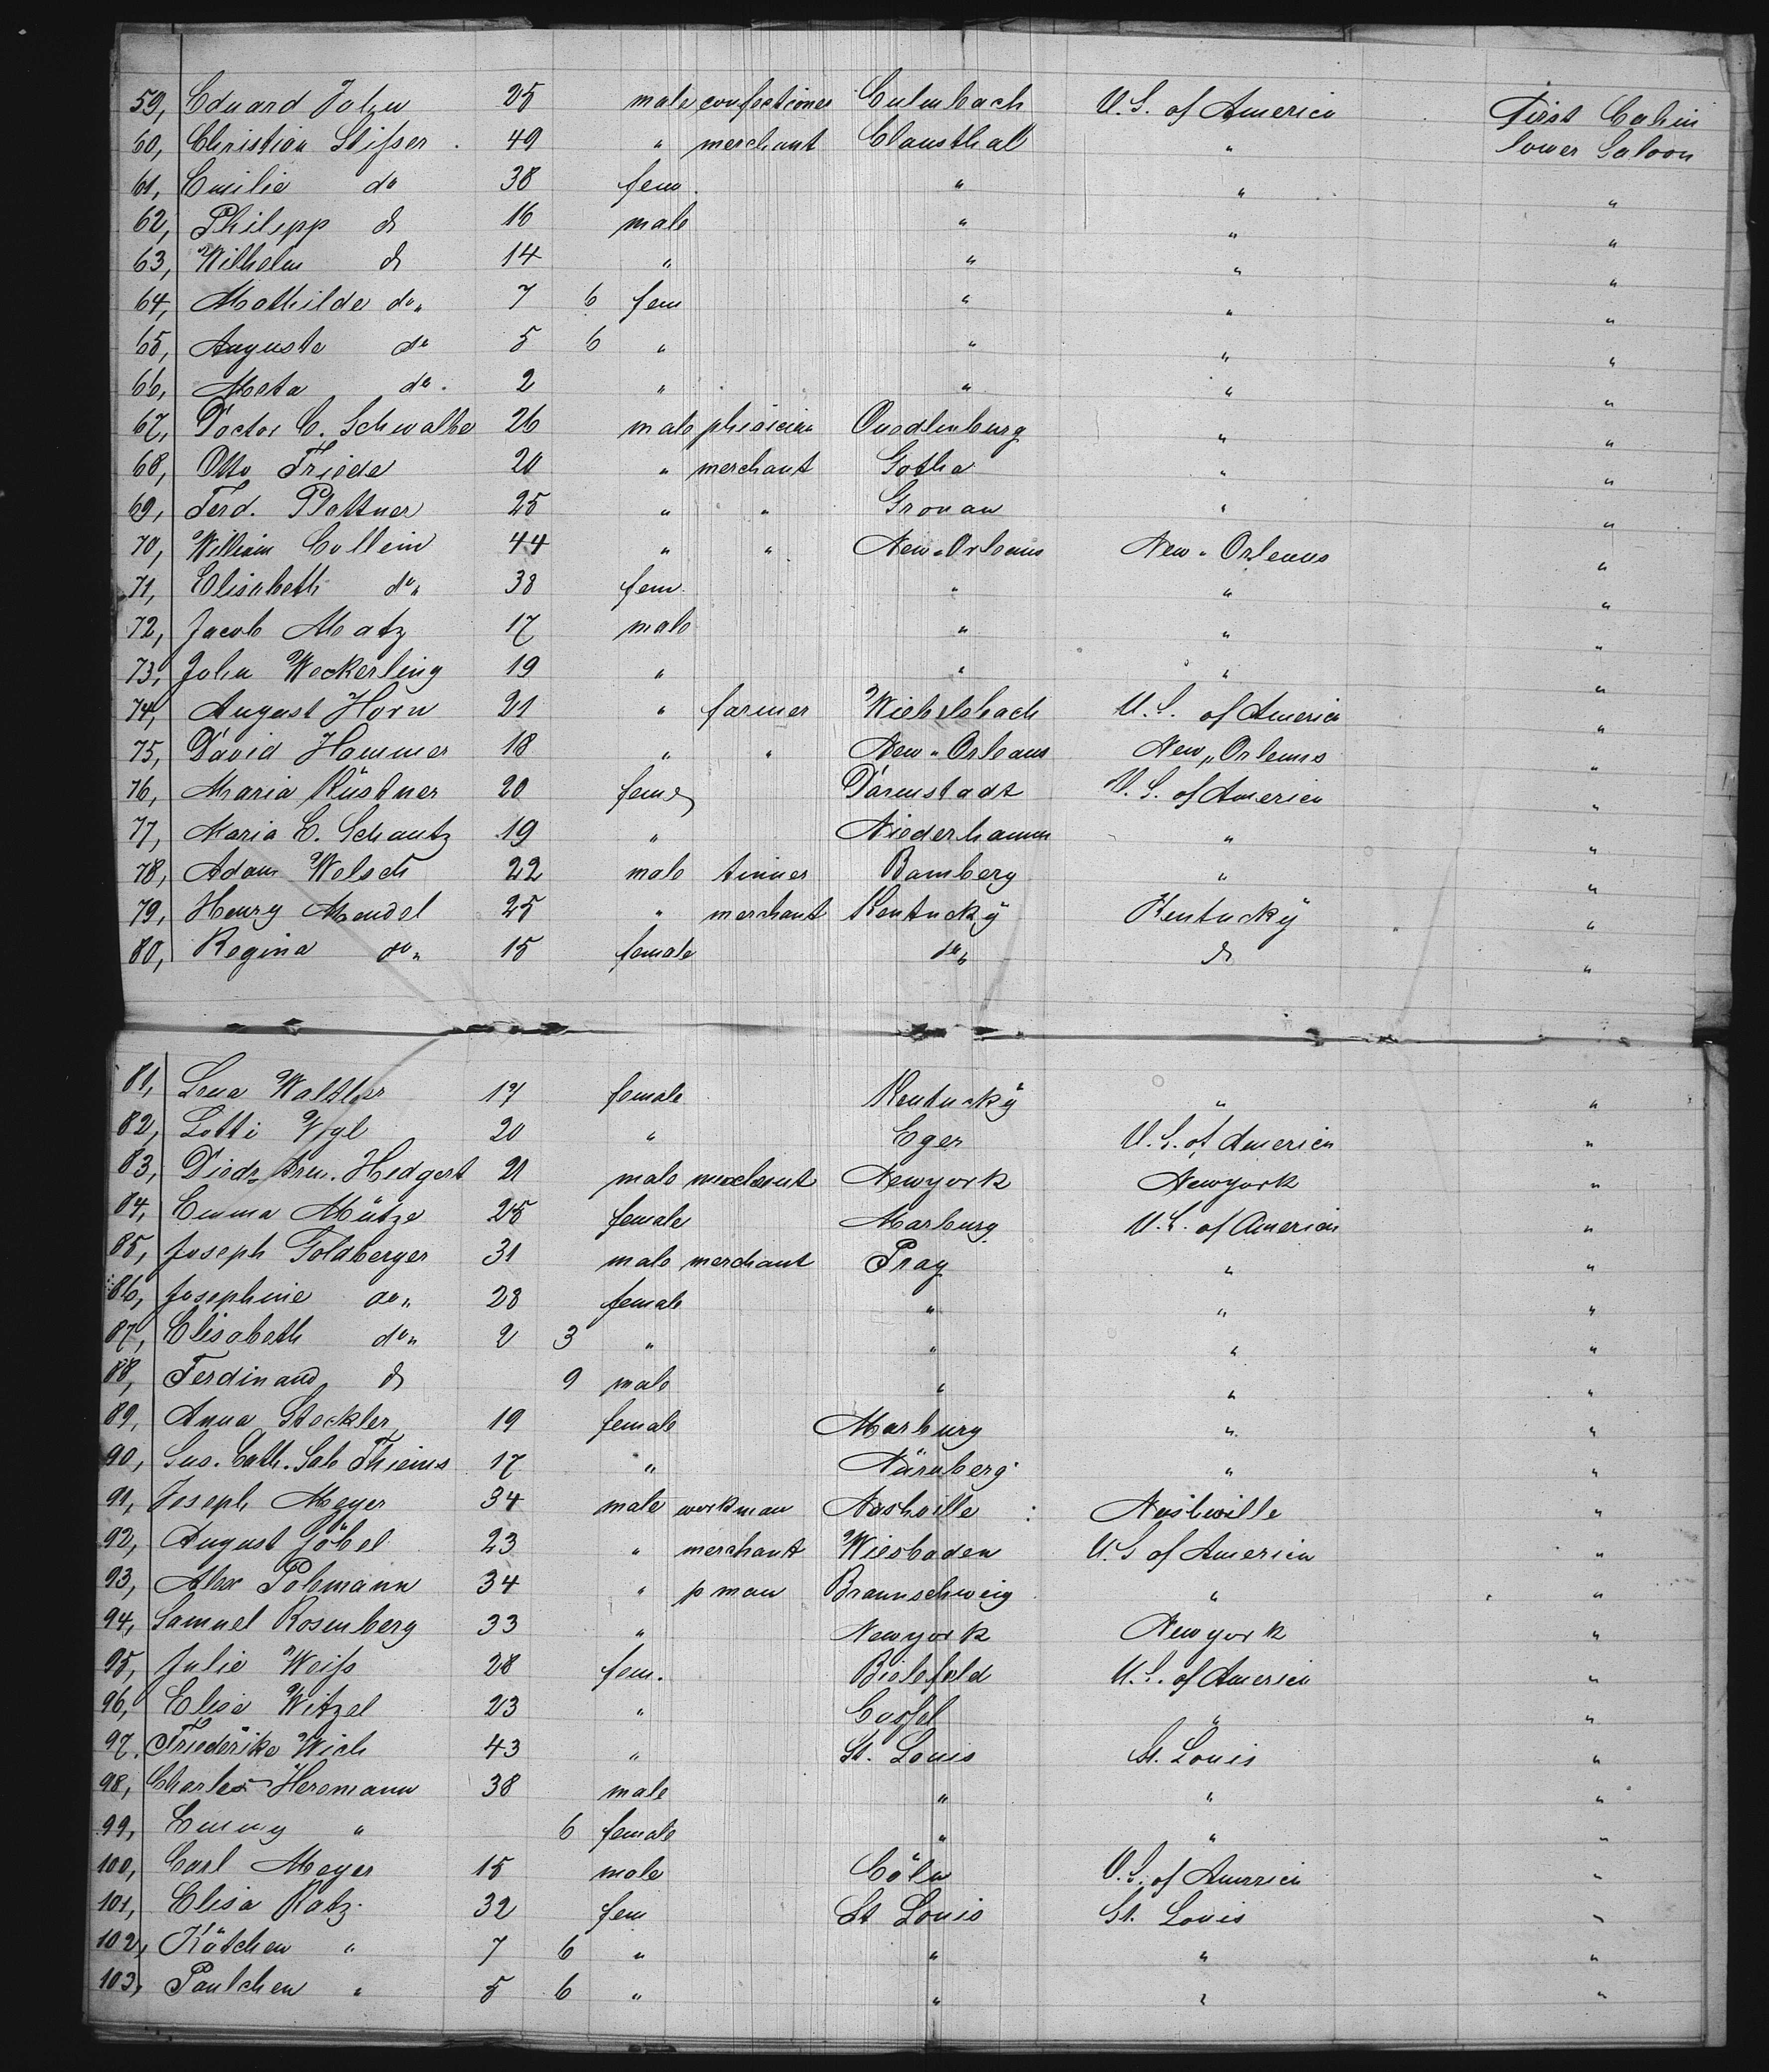 59, Eduard John 25 male confectioner Culmbach U. S. of America First Cabin
60, Christian Stifser 49 " merchant Clausthal " lower Saloon
61, Emilie do 38 fem. " " "
62, Philipp do 16 male " " "
63, Wilhelm do 14 " " " "
64, Mathilde do " 7 6 fem " " "
65, Auguste do 5 6 " " " "
66, Meta do. 2 " " " "
67, Doctor C. Schwalbe 26 male phisician Quedlinburg " "
68, Otto Friede 20 " merchant Gotha " "
69, Ferd. Plattner 25 " " Gronau " "
70, William Collein 44 " " New-Orleans New-Orleans "
71, Elisabeth do " 38 fem. " " "
72, Jacob Matz 17 male " " "
73, John Weckerling 19 " " " "
74, August Horn 21 " farmer Wiebelsbach U. S. of America "
75, David Hammer 18 " " New-Orleans New-Orleans "
76, Maria Küstner 20 fem Darmstadt U. S. of America "
77, Maria E. Schautz 19 " Niederhamm " "
78, Adam Welsch 22 male tinner Bamberg " "
79, Henry Mendel 25 " merchant Kentucky Kentucky "
80, Regina do " 15 female do " do "
81, Lena Walther 17 female Kentucky " "
82, Lotti Vogl 20 " Eger U. S. of America "
83, Diedr. Hedgert 21 male merchant Newyork Newyork "
84, Emma Mütze 25 female Marburg U. S. of America "
85, Joseph Goldberger 31 male merchant Prag " "
86, Josephine do " 28 female " " "
87, Elisabeth do " 2 3 " " " "
88, Ferdinand do 9 male " " "
89, Anna Stockler 19 female Marburg " "
90, Sus. Cath. Sab Thieins 17 " Nürnberg " "
91, Joseph Meyer 34 male workman Nashville : Nashville "
92, August Göbel 23 " merchant Wiesbaden U. S of America "
93, Alex Polemann 34 " p man Braunschweig " "
94, Samuel Rosenberg 33 " Newyork Newyork "
95, Julie Weifs 28 fem. Bielefeld U. S. of America "
96, Elise Witzel 23 " Cassel " "
97. Friederike Wich 43 " St. Louis St. Louis "
98, Charles Heromann 38 male " " "
99, Emmy " 6 female " " "
100, Carl Meyer 15 male Cöln U. S. of America "
101, Elisa Katz. 32 fem St Louis St. Louis "
102, Kätchen " 7 6 " " " "
103, Paulchen " 5 6 " " " "